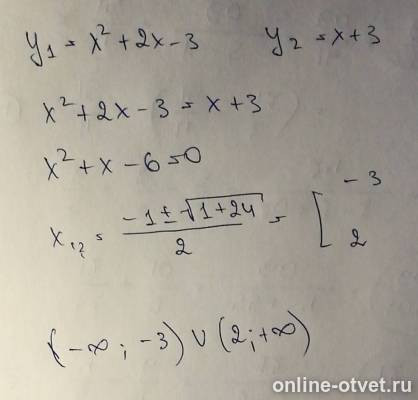 y₁ = x² + 2x - 3    y₂ = x + 3
x² + 2x - 3 = x + 3
x² + x - 6 = 0
x₁,₂ = (-1 ± √(1+24))/2 = [ -3 2
(-∞; -3) ∪ (2; +∞)
online-otvet.ru